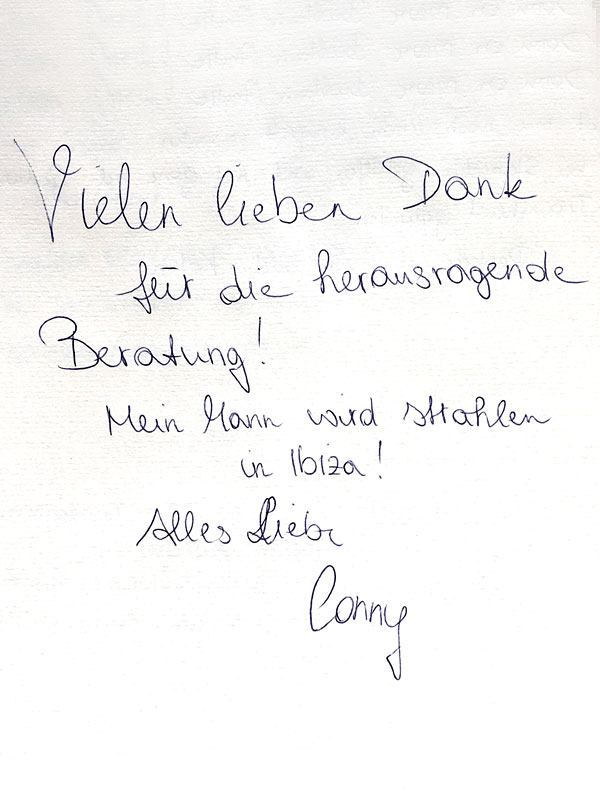 Vielen lieben Dank
für die herausragende
Beratung!
Mein Mann wird strahlen
in Ibiza!
Alles Liebe
Conny